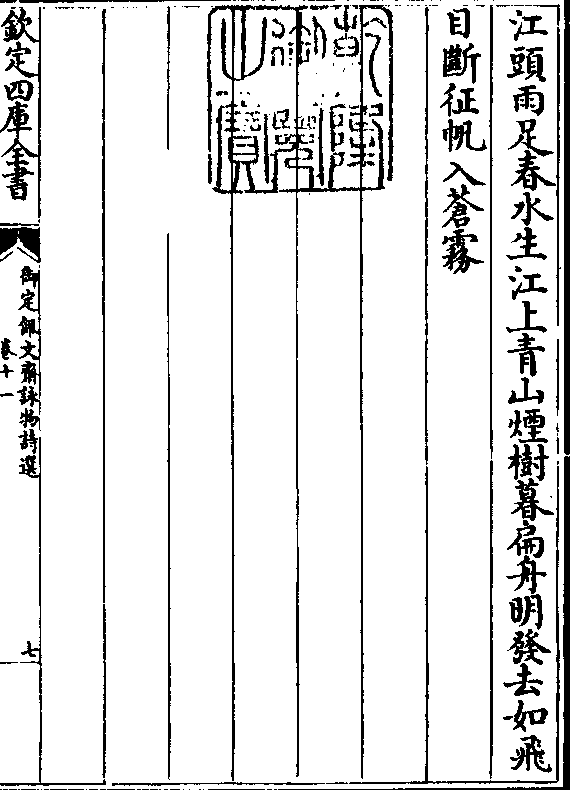 江頭雨足春水生江上青山煙樹暮扁舟明發去如飛
目斷征帆入蒼霧
乾隆御覽之寶
欽定四庫全書
御定佩文齋詠物詩選
卷十一
七